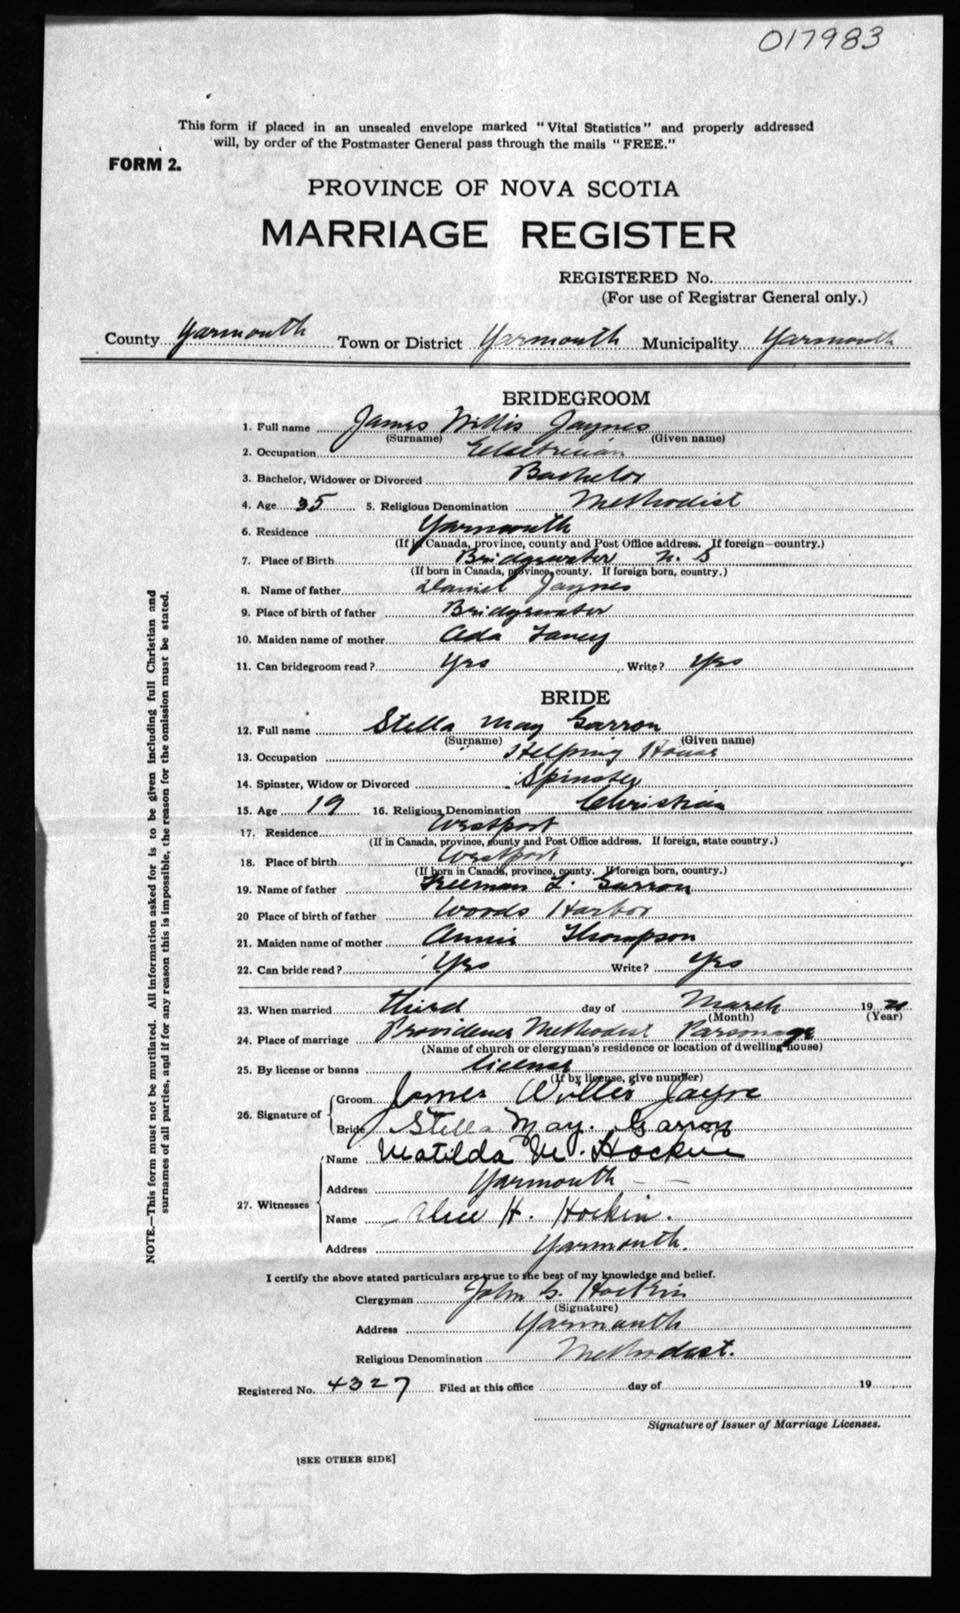 017983
This form if placed in an unsealed envelope marked "Vital Statistics" and properly addressed
will, by order of the Postmaster General pass through the mails "FREE."
FORM 2.
PROVINCE OF NOVA SCOTIA
MARRIAGE REGISTER
REGISTERED No.
(For use of Registrar General only.)
County Yarmouth Town or District Yarmouth Municipality Yarmouth
BRIDEGROOM
1. Full name James Willis Jaynes
(Surname) (Given name)
2. Occupation Electrician
3. Bachelor, Widower or Divorced Bachelor
4. Age 35 5. Religious Denomination Methodist
6. Residence Yarmouth
(If in Canada, province, county and Post Office address. If foreign—country.)
7. Place of Birth Bridgewater N. S
(If born in Canada, province, county. If foreign born, country.)
8. Name of father Daniel Jaynes
9. Place of birth of father Bridgewater
10. Maiden name of mother Ada
11. Can bridegroom read? Yes Write? Yes
BRIDE
12. Full name Stella May Garron
(Surname) (Given name)
13. Occupation Helping House
14. Spinster, Widow or Divorced Spinster
15. Age 19 16. Religious Denomination Christian
17. Residence Westport
(If in Canada, province, county and Post Office address. If foreign, state country.)
18. Place of birth Westport
(If born in Canada, province, county. If foreign born, country.)
19. Name of father Freeman L. Garron
20 Place of birth of father Woods Harbor
21. Maiden name of mother Annie Thompson
22. Can bride read? Yes Write? Yes
23. When married third day of March 19 20
(Month) (Year)
24. Place of marriage Providence Methodist Parsonage
(Name of church or clergyman's residence or location of dwelling house)
25. By license or banns License
(If by license, give number)
26. Signature of Groom James Willis Jayne
Bride Stella May. Garron
27. Witnesses Name Matilda M. Hockin
Address Yarmouth
Name Alice H. Hockin.
Address Yarmouth.
I certify the above stated particulars are true to the best of my knowledge and belief.
Clergyman John G. Hockin
(Signature)
Address Yarmouth
Religious Denomination Methodist.
Registered No. 4327 Filed at this office day of 19
Signature of Issuer of Marriage Licenses.
[SEE OTHER SIDE]
NOTE.—This form must not be mutilated. All information asked for is to be given including full Christian and
surnames of all parties, and if for any reason this is impossible, the reason for the omission must be stated.